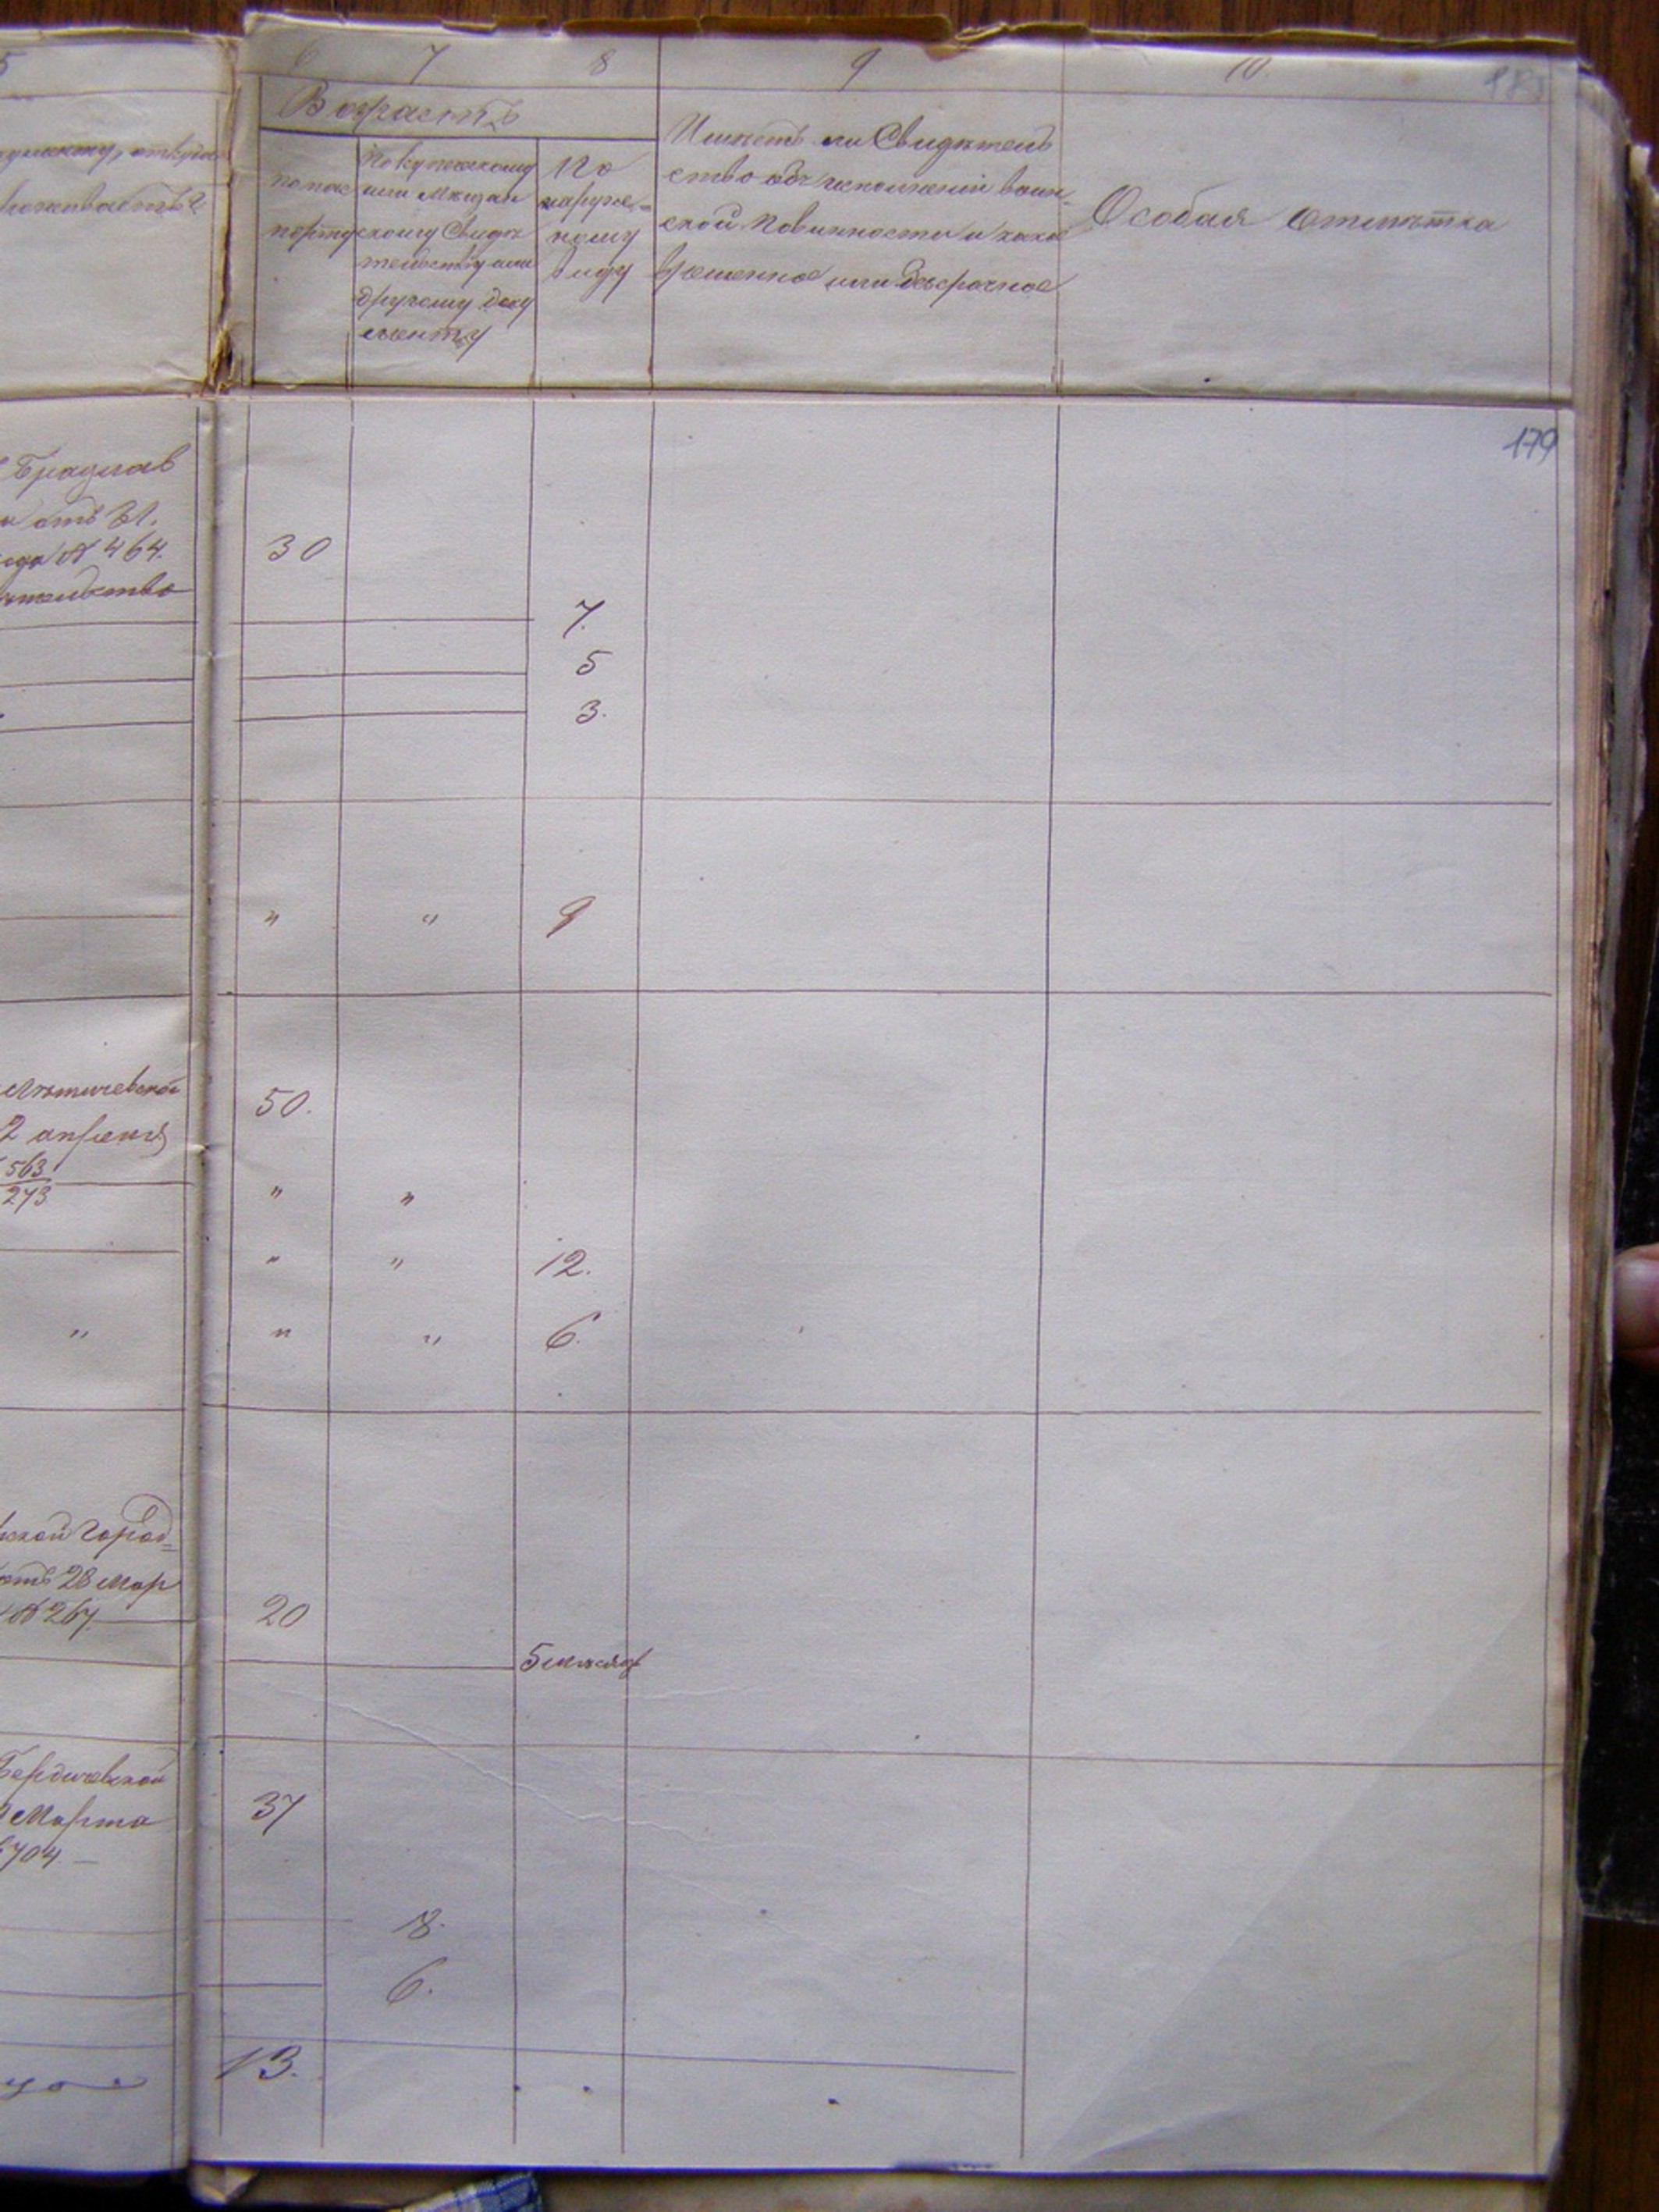 5
6 7 8 9 10
Возрастъ
по пас
порту
по купеческому
или мѣщан
скому свидѣ
тельству или
другому доку
менту
по
наруж=
ному
виду
Имѣетъ ли свидѣтель
ство объ исполненіи воин-
ской повинности и какое
временное или безсрочное
Особая отмѣтка
179
Брацлав
отъ 31.
№ 464.
30
7.
5
3.
" " 9
Летичевской
2 апрѣля
563
273
50.
" "
" " 12.
" " " 6.
ской Город=
отъ 28 Мар
№ 267.
20
5 мѣсяц
Бердичевской
Марта
704. —
37
8.
6.
13.